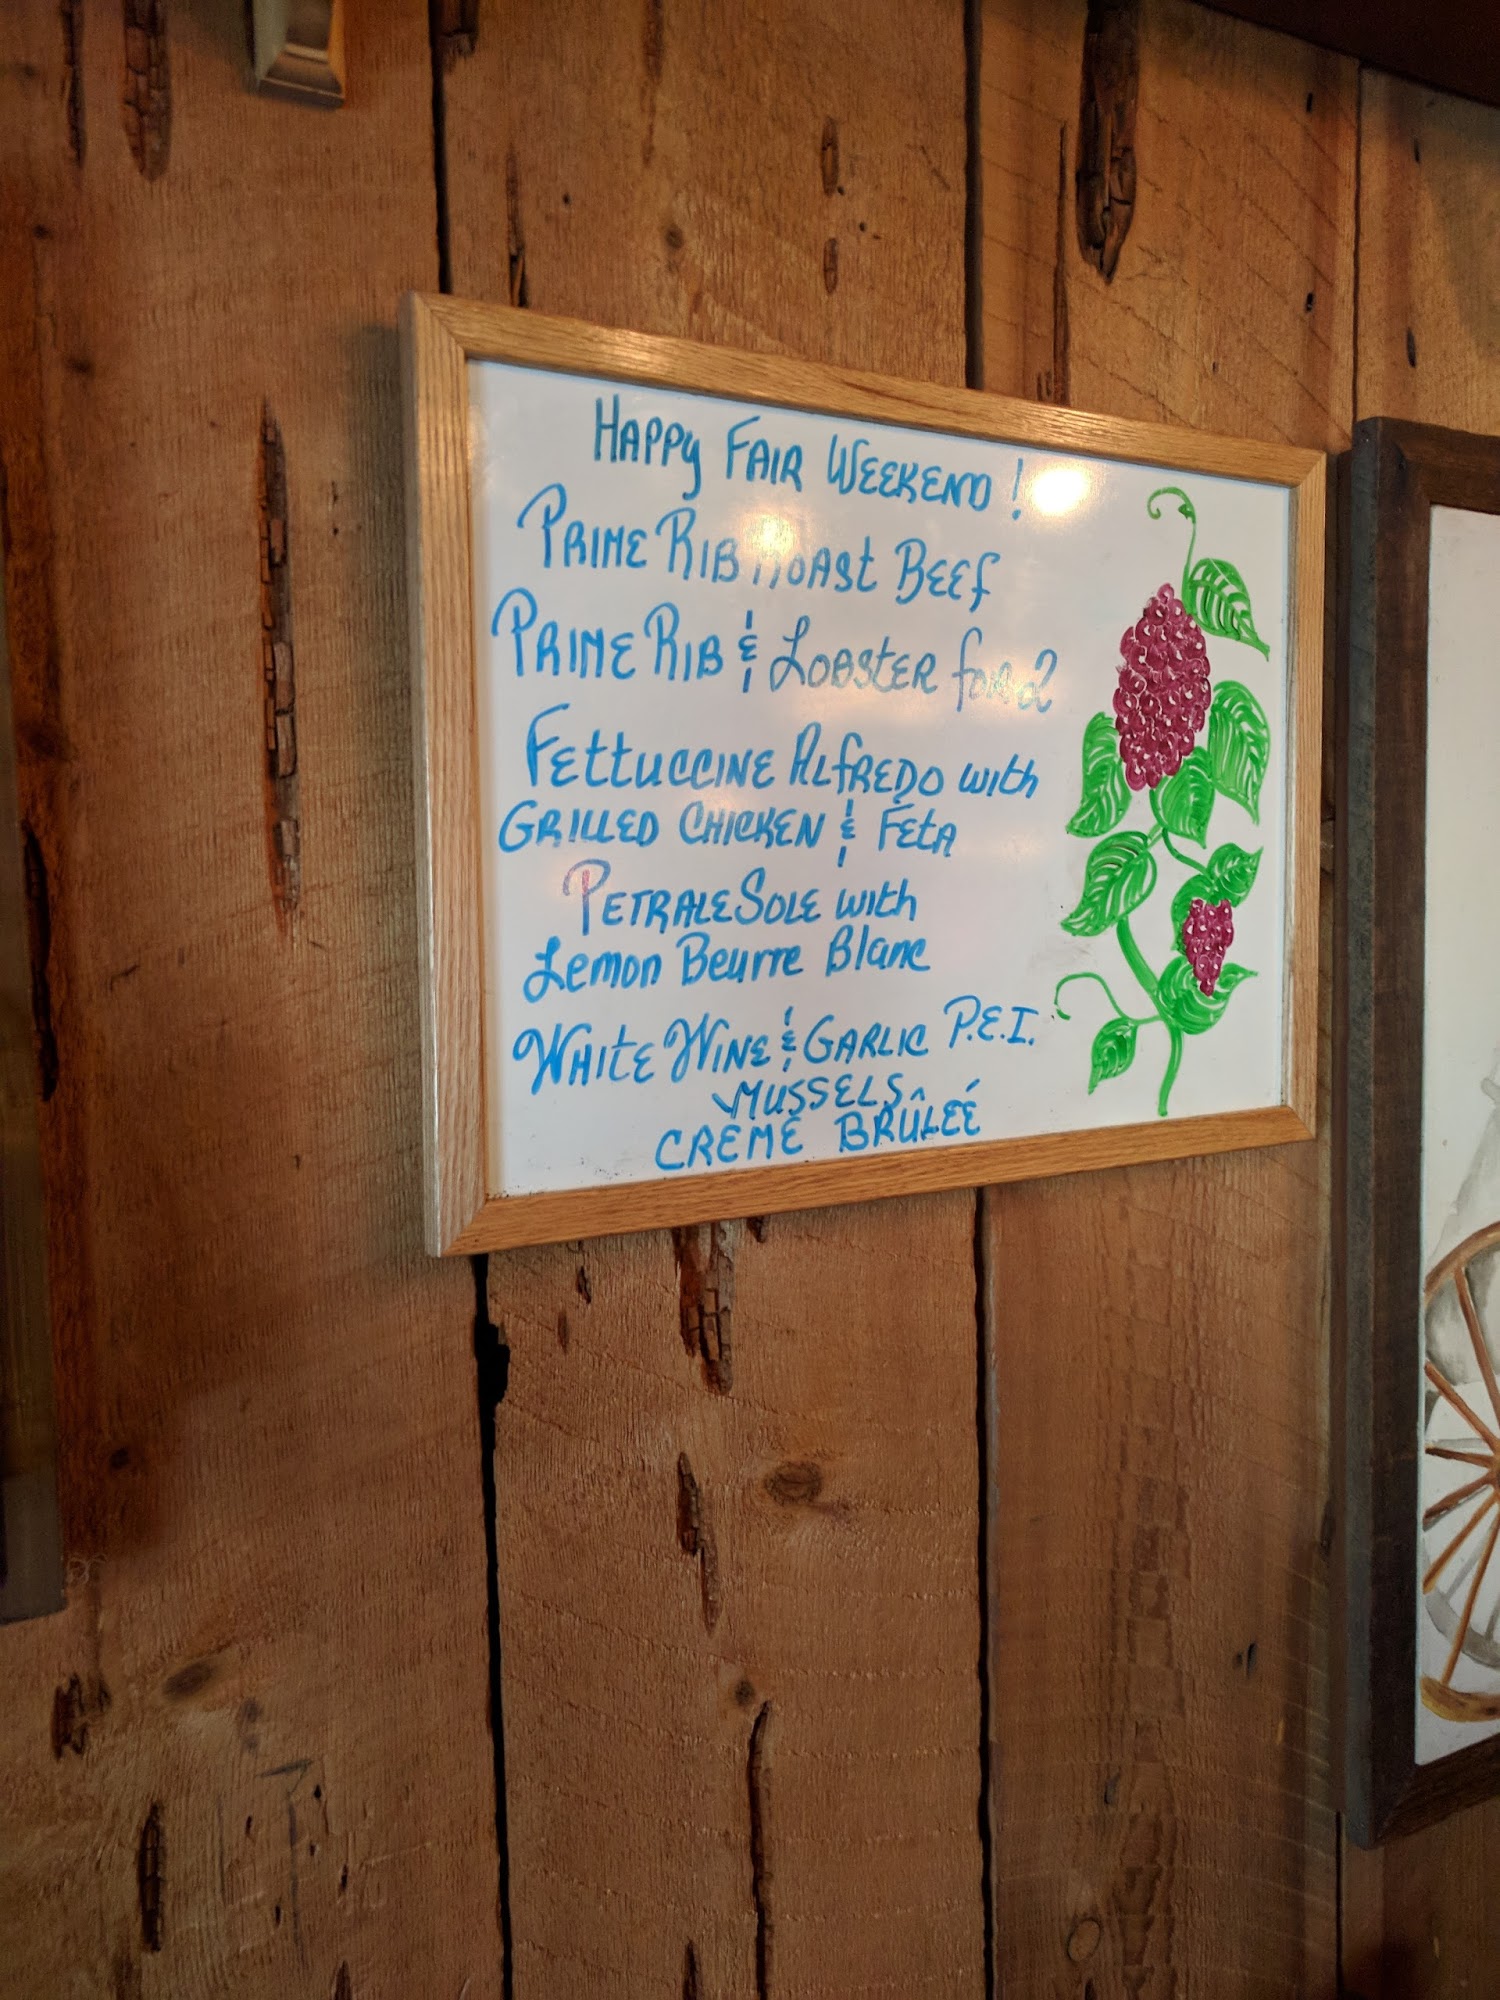 HAPPY FAIR WEEKEND!
PRIME RIB ROAST BEEF
PRIME RIB & LOBSTER for 2
FETTUCCINE ALFREDO with
GRILLED CHICKEN & FETA
PETRALE SOLE with
Lemon Beurre Blanc
WHITE WINE & GARLIC P.E.I.
MUSSELS
CRÈME BRÛLÉE